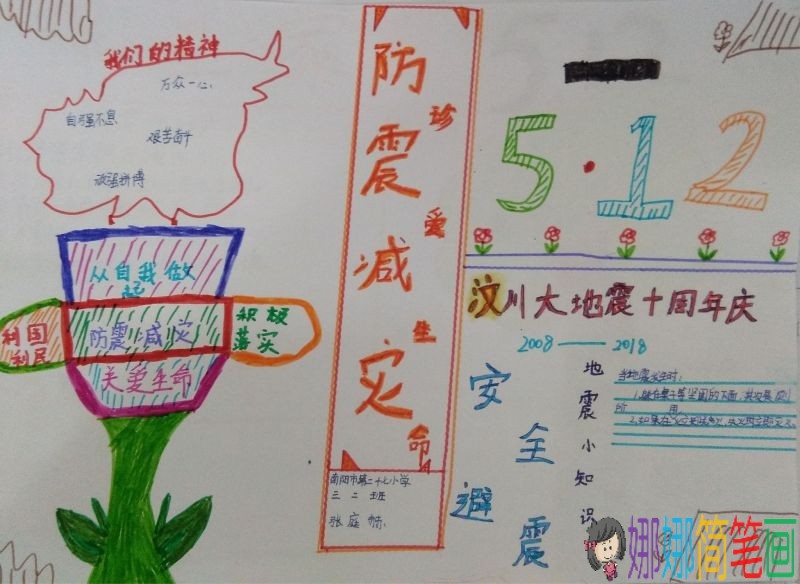 我们的精神
万众一心
自强不息
艰苦奋斗
顽强拼搏
从自我做
起
利国
利民
防震减灾
积极
落实
关爱生命
防震减灾
珍爱生命
南阳市第二十七小学
三二班
5·12
汶川大地震十周年庆
2008——2018
安全避震
地震小知识
当地震发生时:
娜娜简笔画